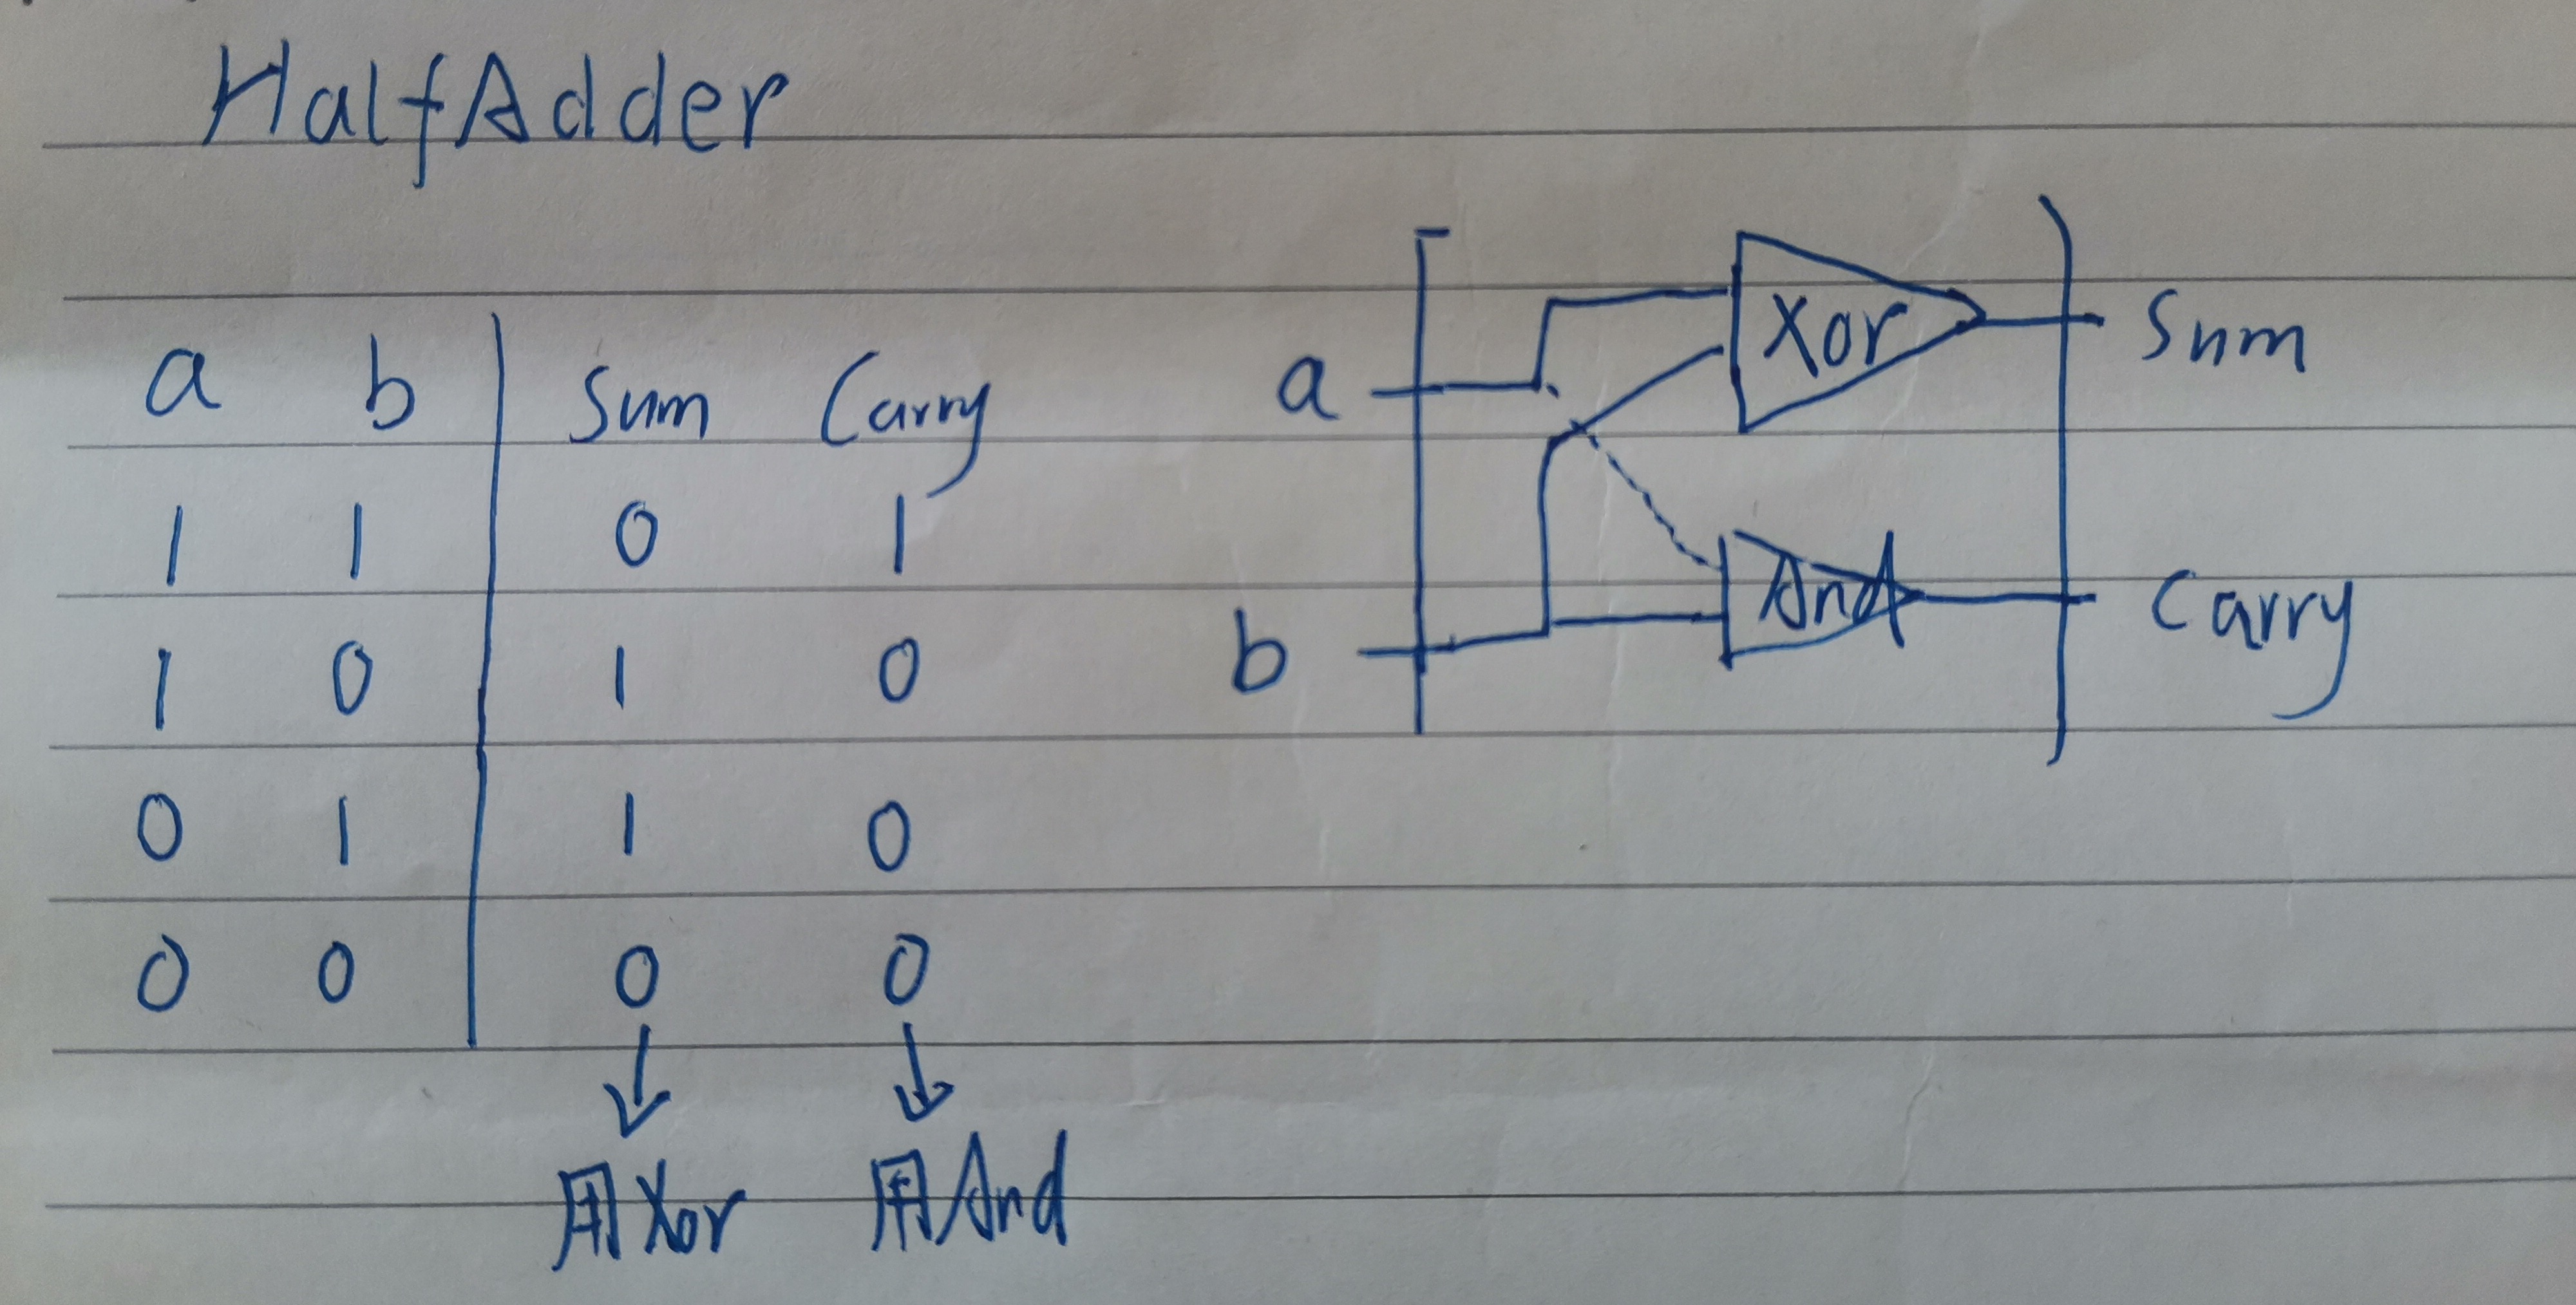 HalfAdder
a b Sum Carry
1 1 0 1
1 0 1 0
0 1 1 0
0 0 0 0
用Xor 用And
a
b
Xor
And
Sum
Carry